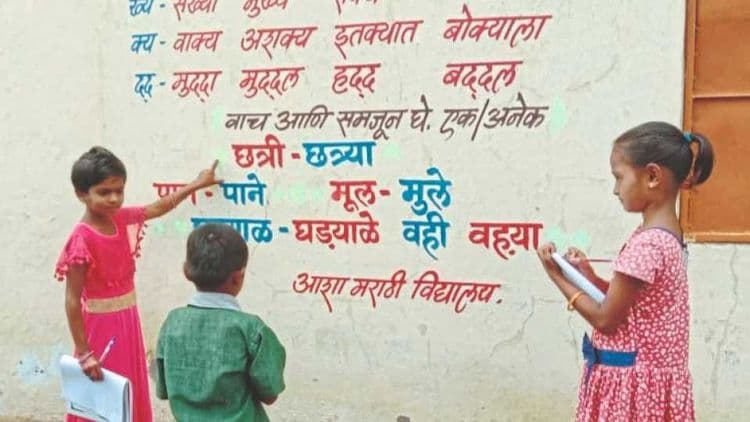 ख्य - संख्या मुख्य
क्य - वाक्य अशक्य इतक्यात बोक्याला
द्द - मुद्दा मुद्दल हद्द बद्दल
वाच आणि समजून घे. एक/अनेक
छत्री - छत्र्या
पान - पाने मूल - मुले
घड्याळ - घड्याळे वही वह्या
आशा मराठी विद्यालय.